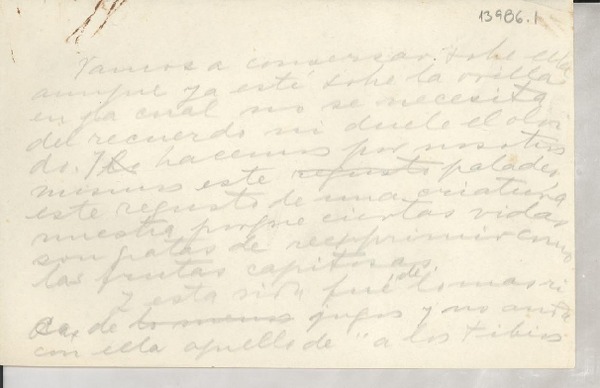 13986.1
Vamos a conversar sobre ella
aunque ya esté sobre la orilla
en la cual no se necesita
del recuerdo ni duele el olvi-
do. Lo hacemos por nosotros
mismos este regusto paladeo
este regusto de una criatura
nuestra porque ciertas vidas
son gratas de reexprimir como
las frutas capitosas.
Y esta sí fué de lo mas ri
ca, de lo menos jugos y no anda
con ella aquello de "a los tibios